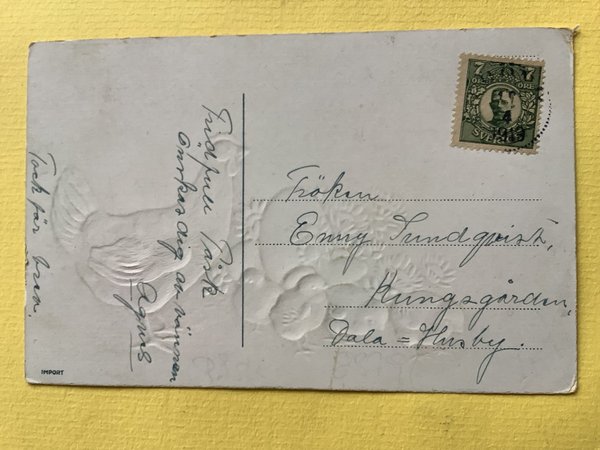 Fridfull Påsk
önskas dig av vännen
Agnes
Tack för
Fröken
Enny Sundqvist,
Kungsgården,
Dala=Husby.
7 7
SVERIGE
4
1919
IMPORT